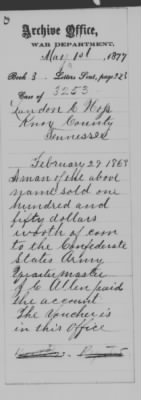 Archive Office,
WAR DEPARTMENT,
May 1st, 1877
Book 3. Letters Sent, page
Case of 3253
Landon C
Knox County
Tennessee
February 27 1863
A man of the above
name sold one
hundred and
fifty dollars
worth of corn
to the Confederate
States Army
Quartermaster
J. C. Allen paid
the account
The voucher is
in this Office